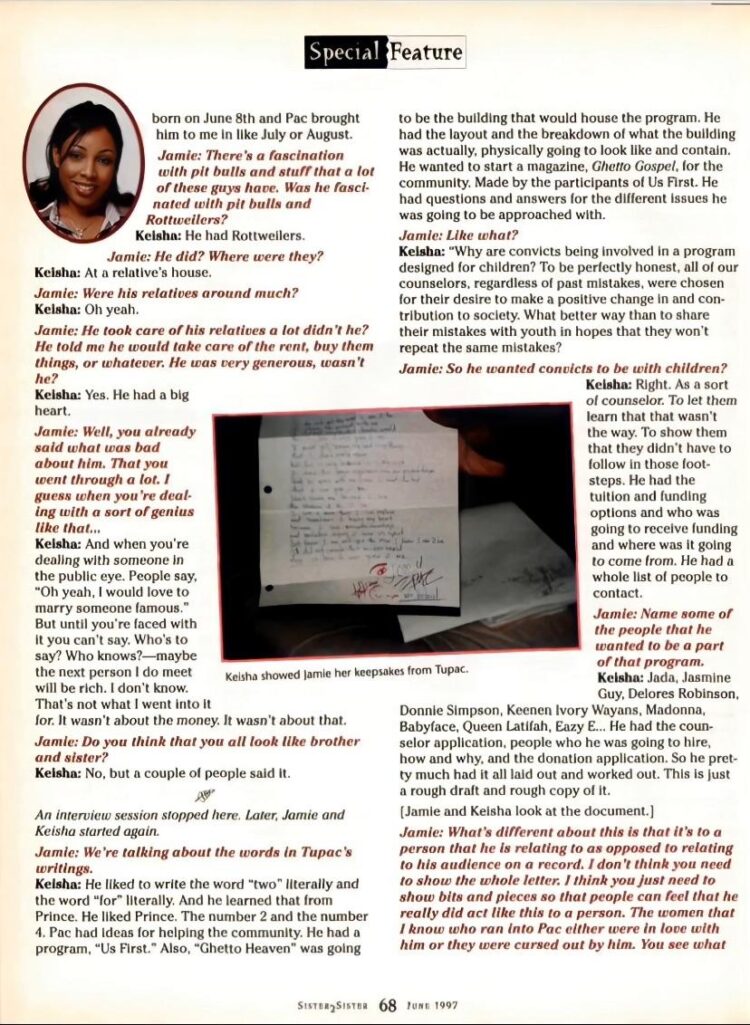 Special Feature
born on June 8th and Pac brought
him to me in like July or August.
Jamie: There's a fascination
with pit bulls and stuff that a lot
of these guys have. Was he fasci-
nated with pit bulls and
Rottweilers?
Keisha: He had Rottweilers.
Jamie: He did? Where were they?
Keisha: At a relative's house.
Jamie: Were his relatives around much?
Keisha: Oh yeah.
Jamie: He took care of his relatives a lot didn't he?
He told me he would take care of the rent, buy them
things, or whatever. He was very generous, wasn't
he?
Keisha: Yes. He had a big
heart.
Jamie: Well, you already
said what was bad
about him. That you
went through a lot. I
guess when you're deal-
ing with a sort of genius
like that...
Keisha: And when you're
dealing with someone in
the public eye. People say,
"Oh yeah, I would love to
marry someone famous."
But until you're faced with
it you can't say. Who's to
say? Who knows?—maybe
the next person I do meet
will be rich. I don't know.
That's not what I went into it
for. It wasn't about the money. It wasn't about that.
Jamie: Do you think that you all look like brother
and sister?
Keisha: No, but a couple of people said it.
An interview session stopped here. Later, Jamie and
Keisha started again.
Jamie: We're talking about the words in Tupac's
writings.
Keisha: He liked to write the word "two" literally and
the word "for" literally. And he learned that from
Prince. He liked Prince. The number 2 and the number
4. Pac had ideas for helping the community. He had a
program, "Us First." Also, "Ghetto Heaven" was going
to be the building that would house the program. He
had the layout and the breakdown of what the building
was actually, physically going to look like and contain.
He wanted to start a magazine, Ghetto Gospel, for the
community. Made by the participants of Us First. He
had questions and answers for the different issues he
was going to be approached with.
Jamie: Like what?
Keisha: "Why are convicts being involved in a program
designed for children? To be perfectly honest, all of our
counselors, regardless of past mistakes, were chosen
for their desire to make a positive change in and con-
tribution to society. What better way than to share
their mistakes with youth in hopes that they won't
repeat the same mistakes?
Jamie: So he wanted convicts to be with children?
Keisha: Right. As a sort
of counselor. To let them
learn that that wasn't
the way. To show them
that they didn't have to
follow in those foot-
steps. He had the
tuition and funding
options and who was
going to receive funding
and where was it going
to come from. He had a
whole list of people to
contact.
Jamie: Name some of
the people that he
wanted to be a part
of that program.
Keisha: Jada, Jasmine
Guy, Delores Robinson,
Donnie Simpson, Keenen Ivory Wayans, Madonna,
Babyface, Queen Latifah, Eazy E... He had the coun-
selor application, people who he was going to hire,
how and why, and the donation application. So he pret-
ty much had it all laid out and worked out. This is just
a rough draft and rough copy of it.
[Jamie and Keisha look at the document.]
Jamie: What's different about this is that it's to a
person that he is relating to as opposed to relating
to his audience on a record. I don't think you need
to show the whole letter. I think you just need to
show bits and pieces so that people can feel that he
really did act like this to a person. The women that
I know who ran into Pac either were in love with
him or they were cursed out by him. You see what
Keisha showed Jamie her keepsakes from Tupac.
SISTER2SISTER 68 JUNE 1997